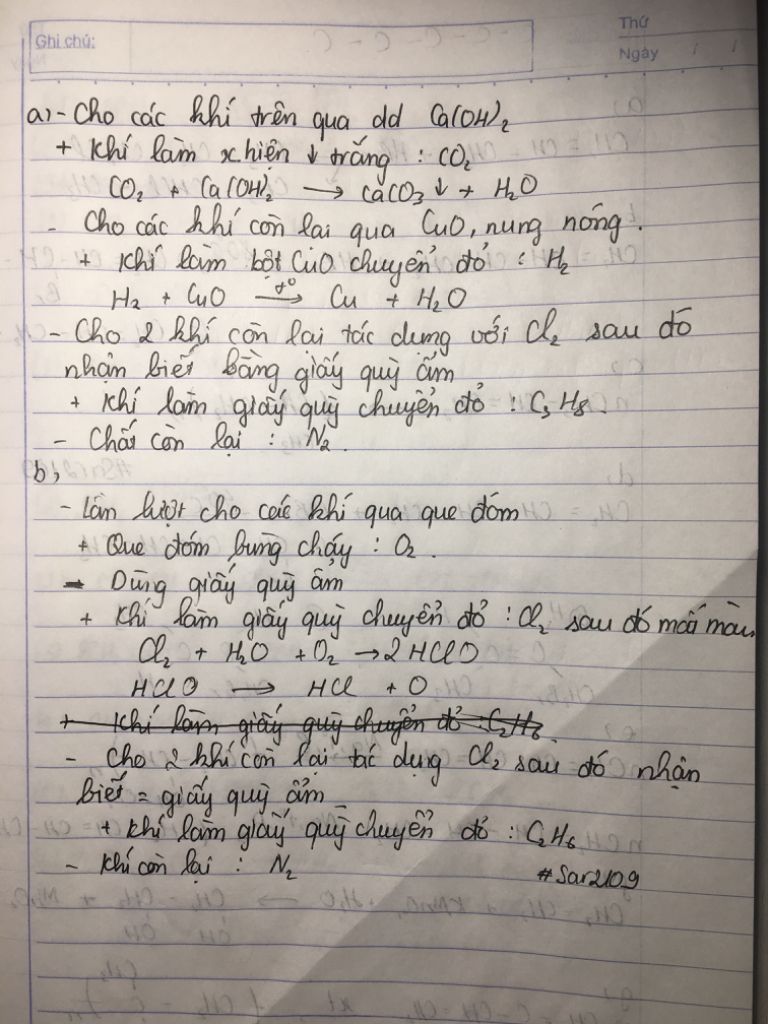 Ghi chú:
Thứ
Ngày
a, - Cho các khí trên qua dd Ca(OH)₂
+ Khí làm x.hiện ↓ trắng : CO₂
CO₂ + Ca(OH)₂ → CaCO₃↓ + H₂O
- Cho các khí còn lại qua CuO, nung nóng.
+ Khí làm bột CuO chuyển đỏ : H₂
H₂ + CuO –t°→ Cu + H₂O
- Cho 2 khí còn lại tác dụng với Cl₂ sau đó
nhận biết bằng giấy quỳ ẩm
+ Khí làm giấy quỳ chuyển đỏ : C₃H₈.
- Chất còn lại : N₂.
b,
- Lần lượt cho các khí qua que đóm
+ Que đóm bùng cháy : O₂.
- Dùng giấy quỳ ẩm
+ Khí làm giấy quỳ chuyển đỏ : Cl₂ sau đó mất màu.
Cl₂ + H₂O + O₂ → 2 HClO
HClO → HCl + O
+ Khí làm giấy quỳ chuyển đỏ : C₂H₆.
- Cho 2 khí còn lại tác dụng Cl₂ sau đó nhận
biết = giấy quỳ ẩm
+ Khí làm giấy quỳ chuyển đỏ : C₂H₆
- Khí còn lại : N₂
#Sar2109